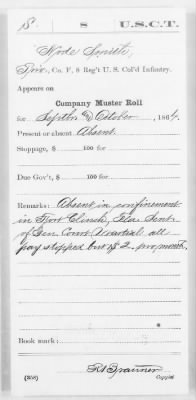 S. 8 U.S.C.T.
Smith,
Co. F, 8 Reg't U. S. Col'd Infantry.
Appears on
Company Muster Roll
for Septbr & October, 1864.
Present or absent Absent.
Stoppage, $ 100 for
Due Gov't, $ 100 for
Remarks: Absent in confinement
in Fort Clinch, Fla. Sent.
of Gen. Court Martial all
pay stopped but $2 pr. month.
Book mark:
(358) Copyist.